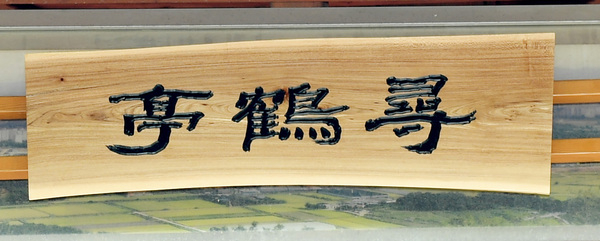 尋鶴亭